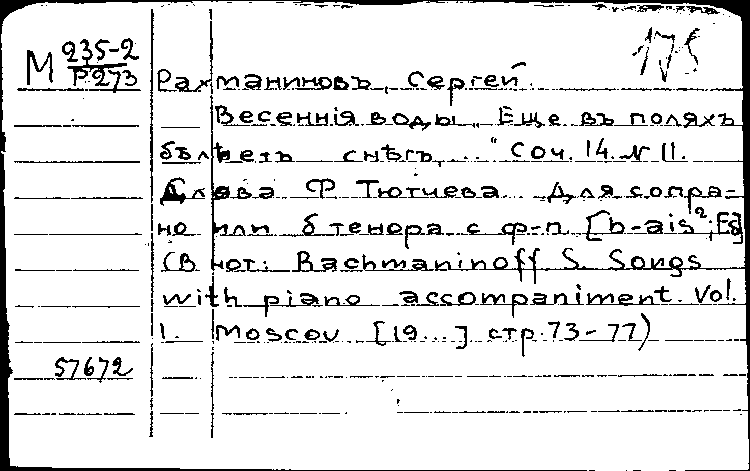 М 235-2
Р 273
175
Рахманиновъ, Сергей.
Весеннія воды „Еще въ поляхъ
бѣлѣетъ снѣгъ,..." Соч. 14. N 11.
Слова Ф Тютчева Для сопра-
но или б тенора с ф-п. [b-ais²; Es]
(В нот: Rachmaninoff S. Songs
with piano accompaniment. Vol.
1. Moscou [19...] стр. 73-77)
57672